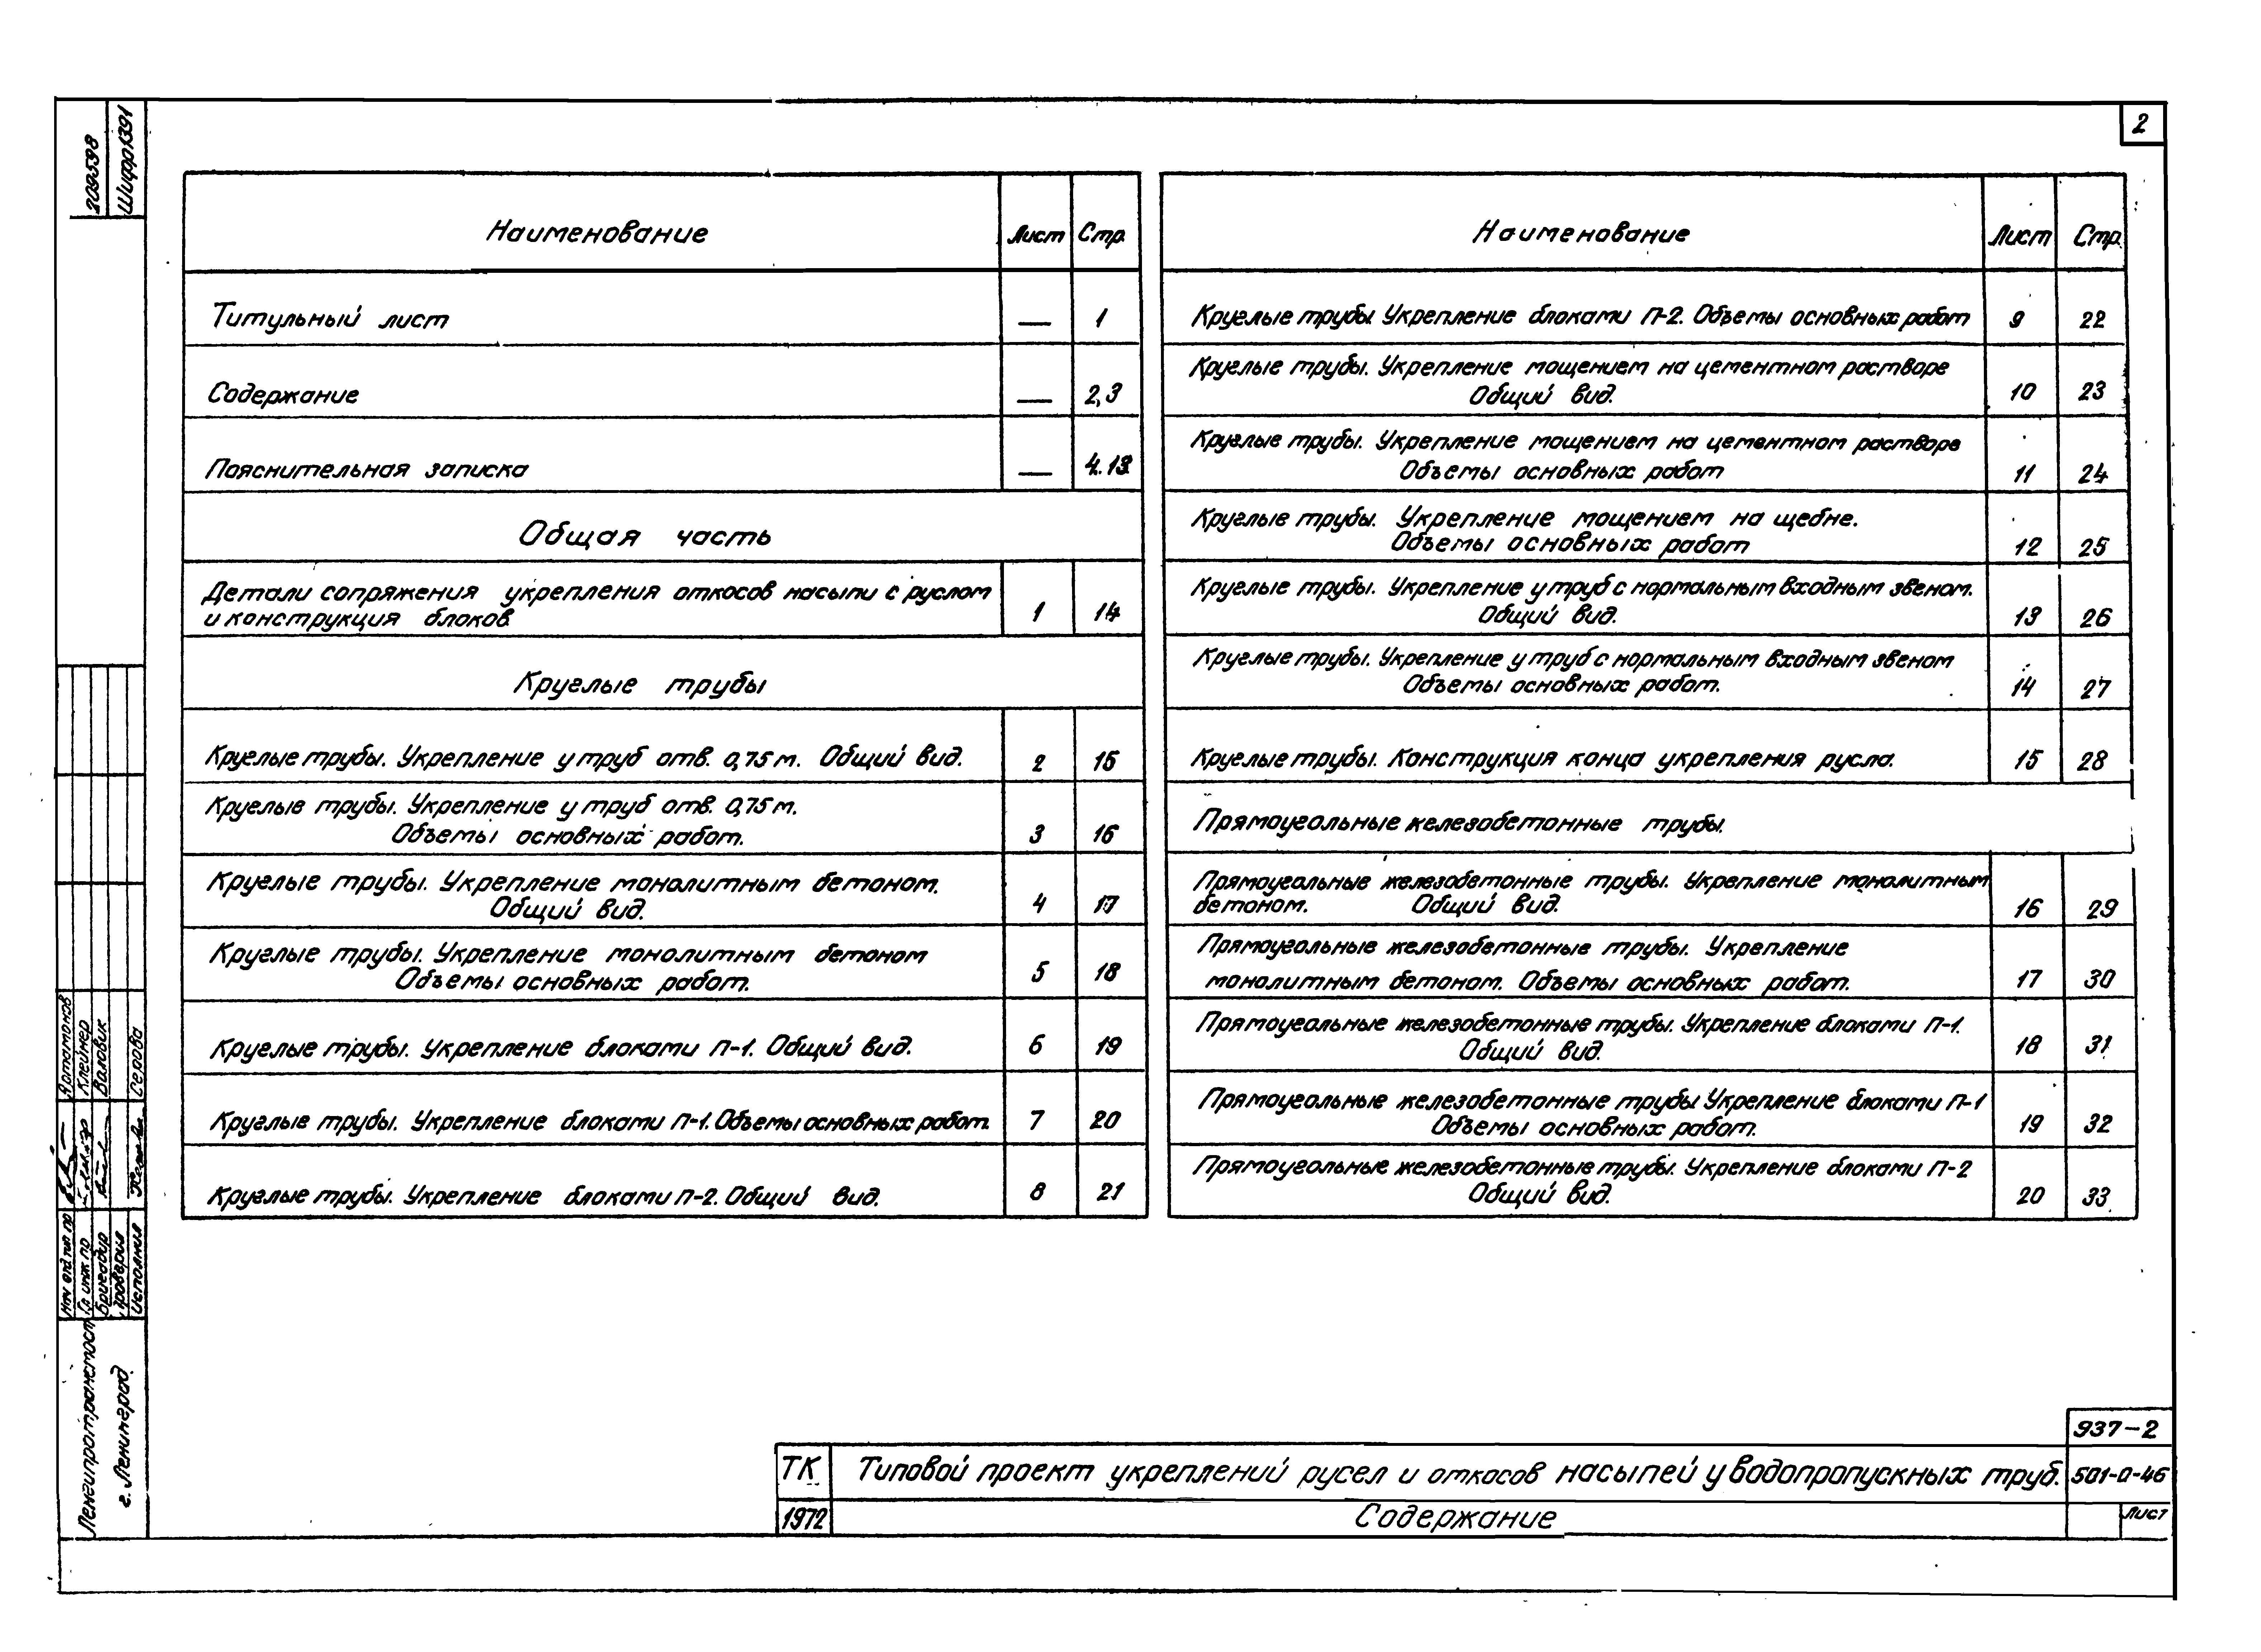 2
209598
Шифр1391
Наименование Лист Стр.
Титульный лист — 1
Содержание — 2,3
Пояснительная записка — 4.13
Общая часть
Детали сопряжения укрепления откосов насыпи с руслом
и конструкция блоков 1 14
Круглые трубы
Круглые трубы. Укрепление у труб отв. 0,75 м. Общий вид. 2 15
Круглые трубы. Укрепление у труб отв. 0,75 м.
Объемы основных работ. 3 16
Круглые трубы. Укрепление монолитным бетоном.
Общий вид. 4 17
Круглые трубы. Укрепление монолитным бетоном
Объемы основных работ. 5 18
Круглые трубы. Укрепление блоками П-1. Общий вид. 6 19
Круглые трубы. Укрепление блоками П-1. Объемы основных работ. 7 20
Круглые трубы. Укрепление блоками П-2. Общий вид. 8 21
Наименование Лист Стр.
Круглые трубы Укрепление блоками П-2. Объемы основных работ 9 22
Круглые трубы. Укрепление мощением на цементном растворе
Общий вид. 10 23
Круглые трубы. Укрепление мощением на цементном растворе
Объемы основных работ 11 24
Круглые трубы. Укрепление мощением на щебне.
Объемы основных работ 12 25
Круглые трубы. Укрепление у труб с нормальным входным звеном.
Общий вид. 13 26
Круглые трубы. Укрепление у труб с нормальным входным звеном
Объемы основных работ. 14 27
Круглые трубы. Конструкция конца укрепления русла. 15 28
Прямоугольные железобетонные трубы.
Прямоугольные железобетонные трубы. Укрепление монолитным
бетоном. Общий вид. 16 29
Прямоугольные железобетонные трубы. Укрепление
монолитным бетоном. Объемы основных работ. 17 30
Прямоугольные железобетонные трубы. Укрепление блоками П-1.
Общий вид. 18 31
Прямоугольные железобетонные трубы Укрепление блоками П-1
Объемы основных работ. 19 32
Прямоугольные железобетонные трубы. Укрепление блоками П-2
Общий вид. 20 33
Нач отд тип пр Артамонов
Гл инж пр Клейнер
Бригадир Валовик
Проверил
Исполнил Серова
Ленгипротрансмост
г. Ленинград.
937-2
ТК Типовой проект укреплений русел и откосов насыпей у водопропускных труб. 501-0-46
1972 Содержание Лист